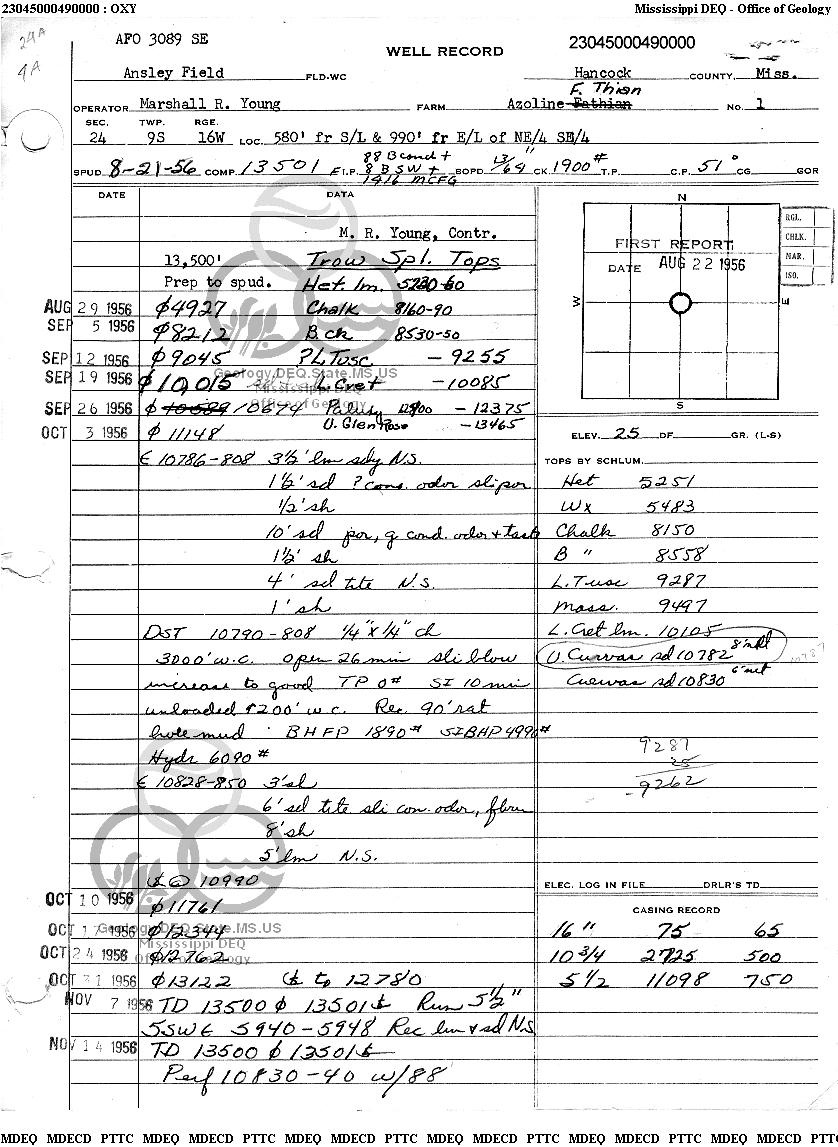 23045000490000 : OXY
Mississippi DEQ - Office of Geology
29A
4A
AFO 3089 SE
WELL RECORD
23045000490000
Ansley Field FLD-WC Hancock COUNTY, Miss.
F. Thian
OPERATOR Marshall R. Young FARM Azoline Fathian NO. 1
SEC. TWP. RGE.
24 9S 16W LOC. 580' fr S/L & 990' fr E/L of NE/4 SE/4
88 B cond +
SPUD 8-21-56 COMP. 13501 F.I.P. 8 B SW + BOPD 13/64" CK 1900# T.P. C.P. 51° CG GOR
1416 MCFG
DATE DATA
M. R. Young, Contr.
13,500' Trow Spl. Tops
Prep to spud. Het. lm. 5230-60
AUG 29 1956 ϕ4927 Chalk 8160-90
SEP 5 1956 ϕ8212 B. ck 8530-50
SEP 12 1956 ϕ9045 ?L. Tusc - 9255
Geology.DEQ.State.MS.US
SEP 19 1956 ϕ10,015 L. Cret - 10085
Mississippi DEQ
Office of Geology
SEP 26 1956 ϕ 10589 10674 Paluxy - 12375
OCT 3 1956 ϕ 11148 U. Glen Rose - 13465
₵ 10786-808 3½' lm sdy N.S.
1½' sd ? cons. odor sli por
½' sh
10' sd por, g cond. odor + taste
1½' sh
4' sd tite N.S.
1' sh
DST 10790-808 ¼" x ¼" ch
3000' w.c. open 26 min sli blow
increase to good TP 0# SI 10 min
unloaded 200' w.c. Rec. 90' rat
hole mud BHFP 1890# SIBHP 4990#
Hydr 6090#
₵ 10828-850 3' sh
6' sd tite sli con. odor, fluor
8' sh
5' lm N.S.
@ 10990
OCT 10 1956 ϕ11761
OCT 17 1956 ϕ12344
Geology.DEQ.State.MS.US
Mississippi DEQ
Office of Geology
OCT 24 1956 ϕ12762
OCT 31 1956 ϕ13122 to 12780
NOV 7 1956 TD 13500 ϕ 13501 Run 5½"
SSW₵ 5940-5948 Rec lm + sd N.S.
NOV 14 1956 TD 13500 ϕ 13501
Perf 10830-40 w/88
N
FIRST REPORT:
DATE AUG 22 1956
W
E
S
RGL.
CHLK.
MAR.
ISO.
ELEV. 25 DF GR. (L-S)
TOPS BY SCHLUM.
Het 5251
Wx 5483
Chalk 8150
B " 8558
L. Tusc 9287
Mass. 9497
L. Cret lm. 10105
U. Cuevas sd 10782 8' net
10787
Cuevas sd 10830 6' net
9287
25
-9262
ELEC. LOG IN FILE DRLR'S TD
CASING RECORD
16" 75 65
10 3/4 2725 500
5 1/2 11098 750
MDEQ MDECD PTTC MDEQ MDECD PTTC MDEQ MDECD PTTC MDEQ MDECD PTTC MDEQ MDECD PTTC MDEQ MDECD PTTC